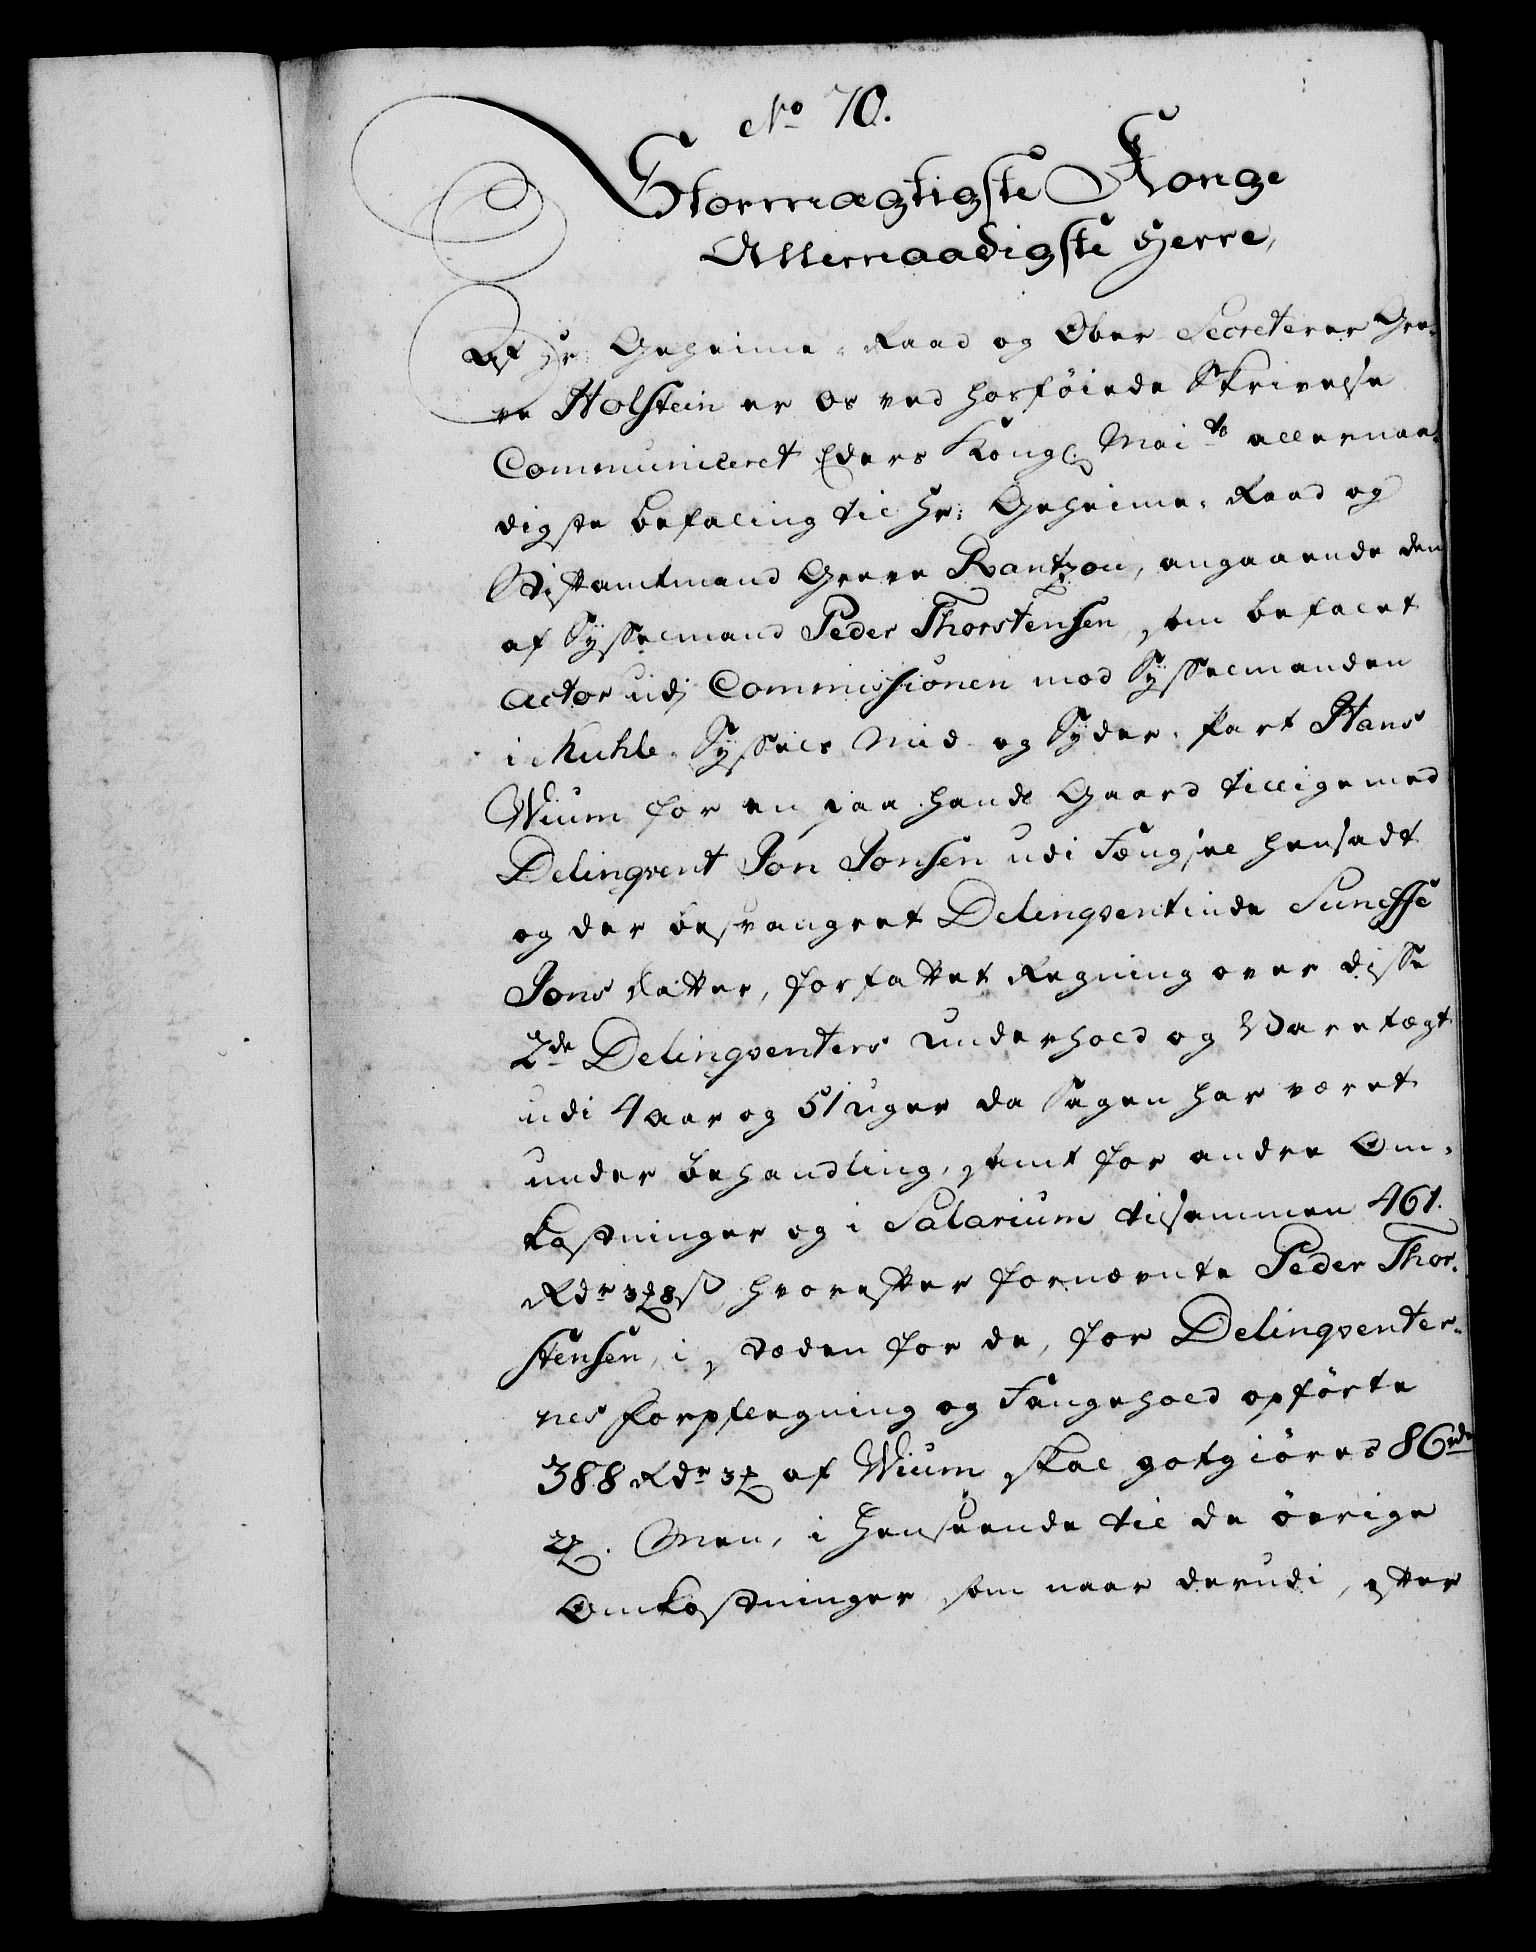 No 70.
Stormægtigste Konge
Allernaadigste Herre,
Af Hr. Geheime-Raad og Ober Secreterer Gre-
ve Holstein er os ved hosføiede Skrivelse
Communiceret Eders Kongl. Mai.ts allernaa-
digste befaling til Hr: Geheime-Raad og
Stiftamtmand Greve Rantzou, angaaende den
af Sysselmand Peder Thorstensen, som befalet
Actor udj Commissionen mod Sysselmanden
i Muhle-Syssels Mid- og Syder-Part Hans
Wium for en paa hands Gaard tilligemed
Delinqvent Jon Jonsen udi Fengsel hensadt
og der besvangret Delinqventinde Suneffe
Jons datter, forfattet Regning over disse
2de Delinqventers underhold og Varetægt
udi 4 aar og 51 uger da Sagen har været
under behandling, samt for andre Om-
kostninger og i Salarium tilsammen 461.
Rdr 3 ℔ 8 ß, hvorefter fornævnte Peder Thor-
stensen, i stæden for de, for Delinqventer-
nes Forpflegning og Fangehold opførte
388 Rdr 3 ℔ af Wium skal gotgiøres 86 rdr
2 ℔. Men, i henseende til de øvrige
Omkostninger som naar derudi, efter